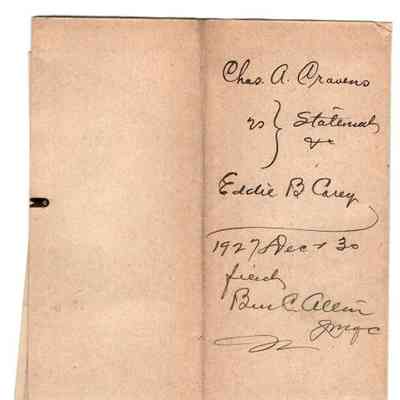 Chas. A. Cravens
vs } Statement
&c
Eddie B Carey
1927 Dec r 30
filed
Ben C. Allin
JMGC